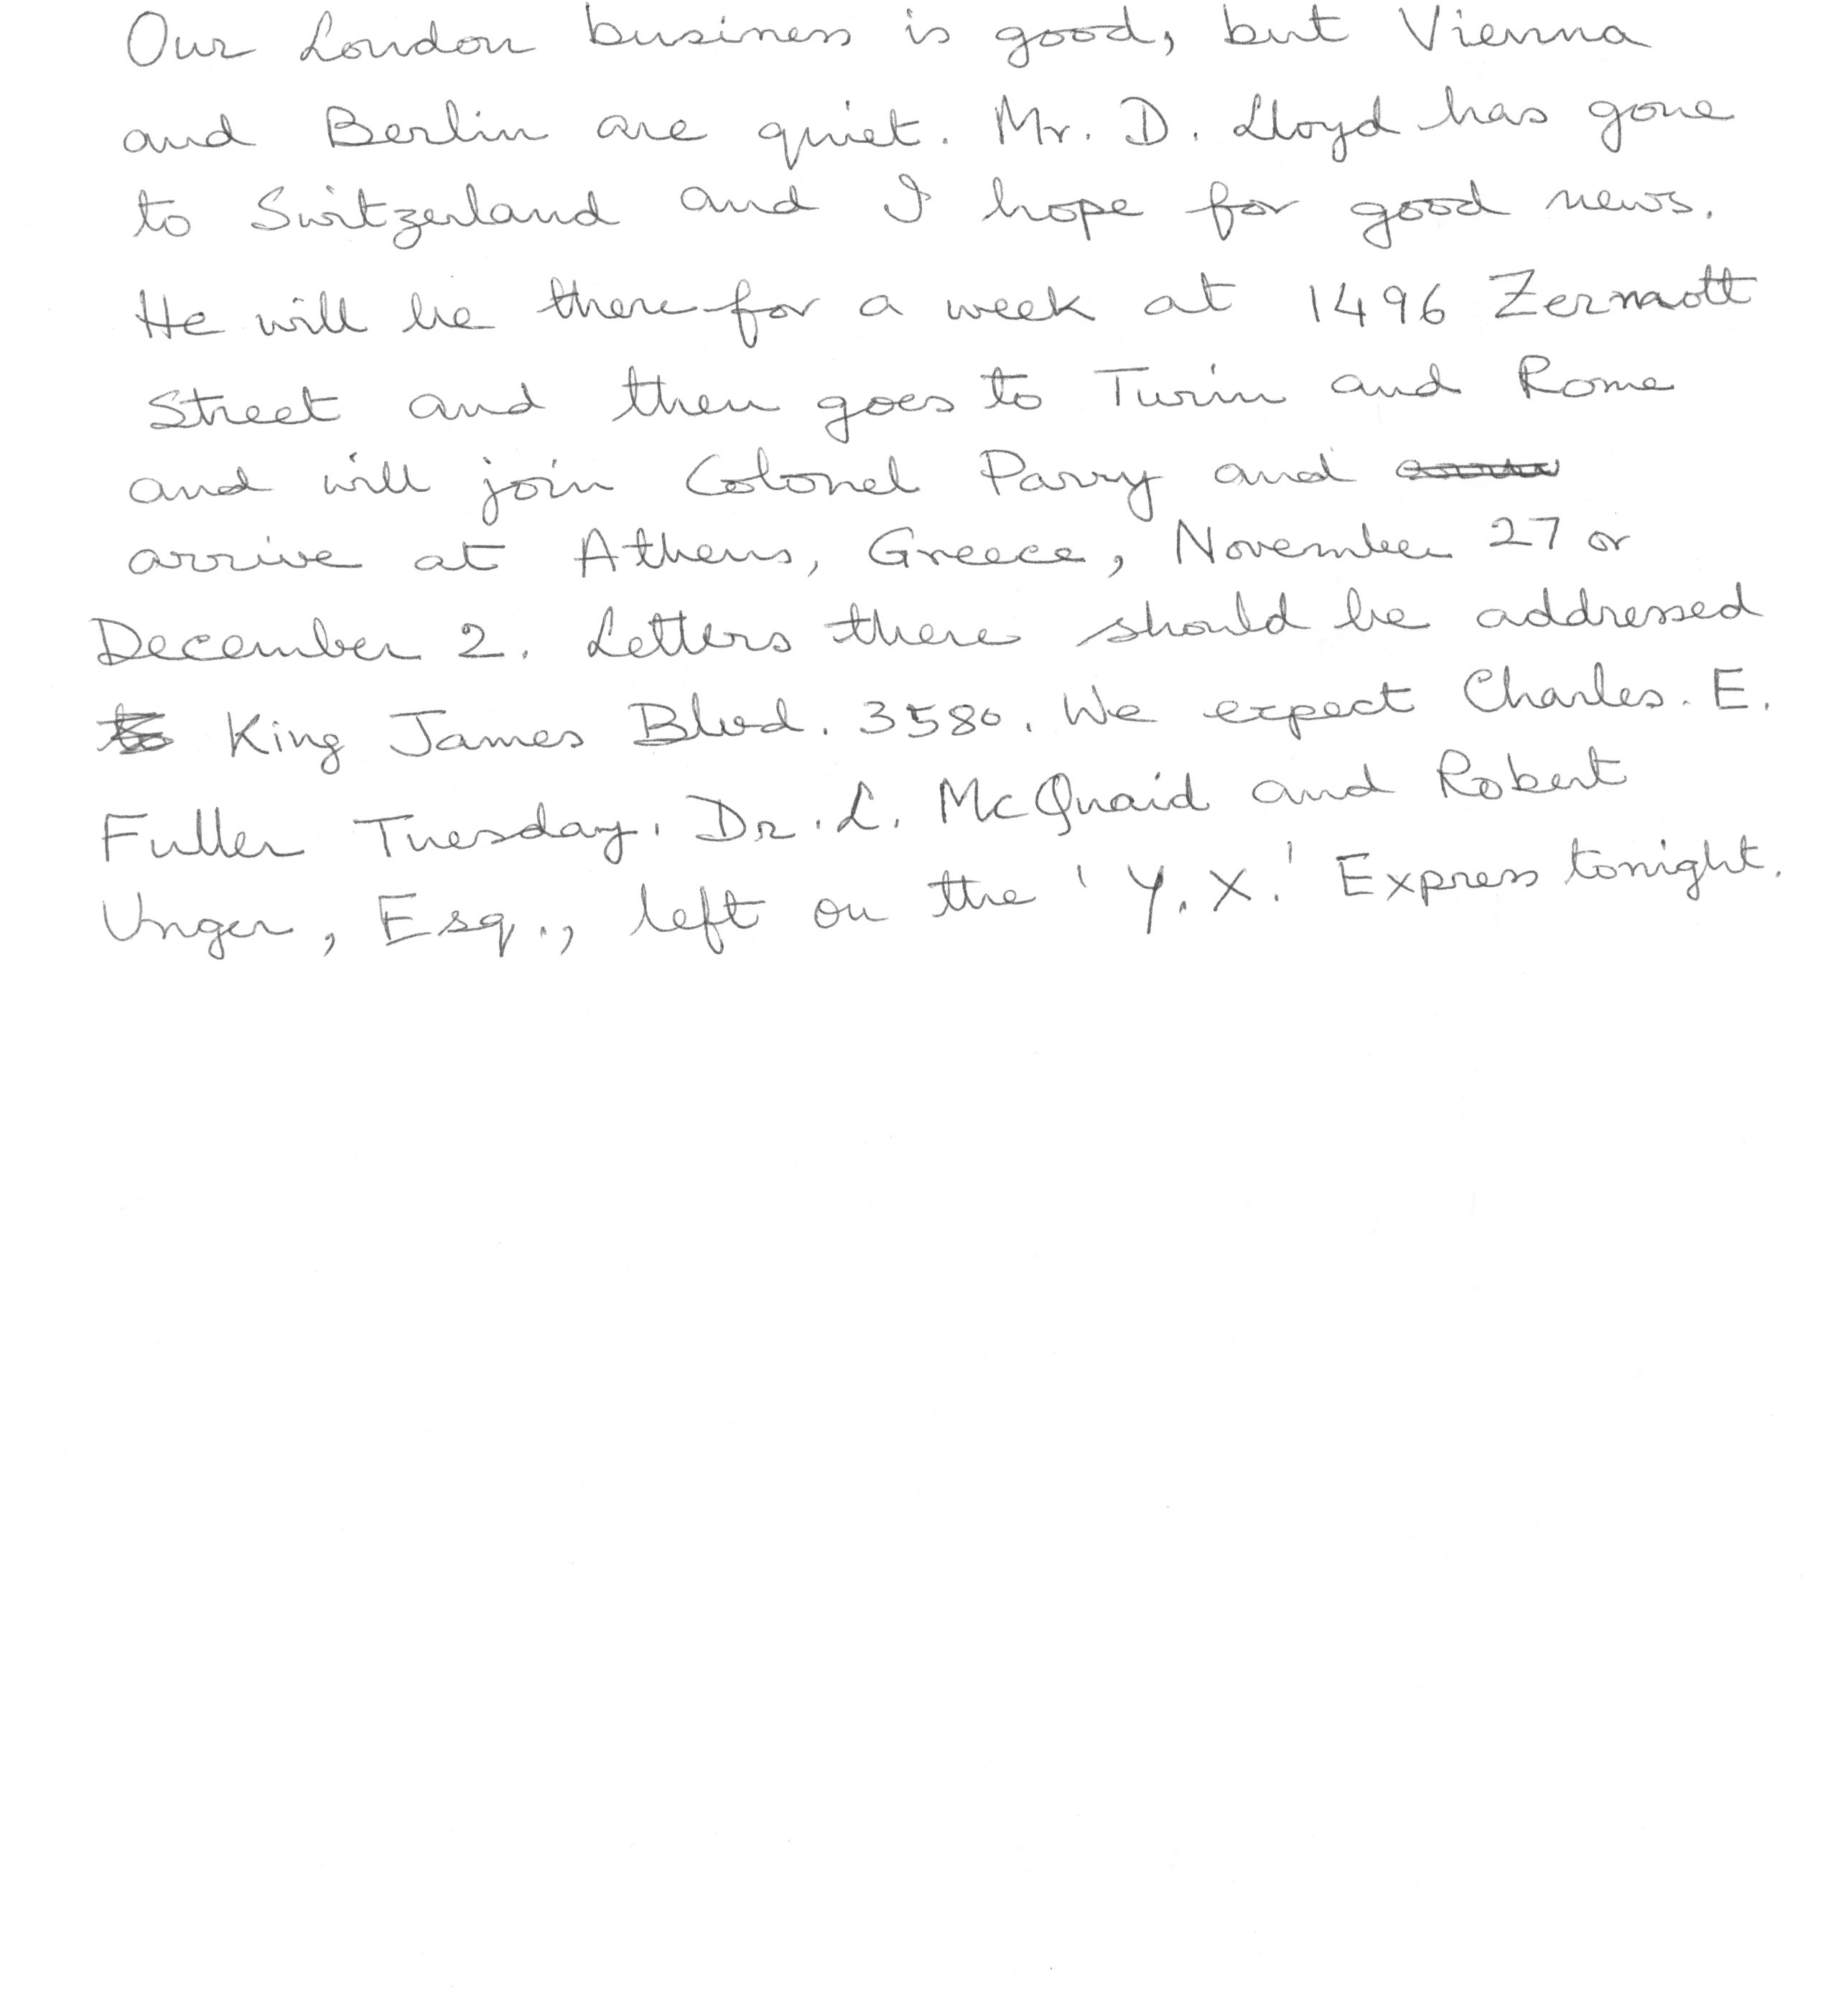 Our London business is good, but Vienna
and Berlin are quiet. Mr. D. Lloyd has gone
to Switzerland and I hope for good news.
He will be there for a week at 1496 Zermott
Street and then goes to Turin and Rome
and will join Colonel Parry and
arrive at Athens, Greece, November 27 or
December 2. Letters there should be addressed
King James Blvd. 3580. We expect Charles. E.
Fuller Tuesday. Dr. L. McQuaid and Robert
Unger, Esq., left on the 'Y.X.' Express tonight.